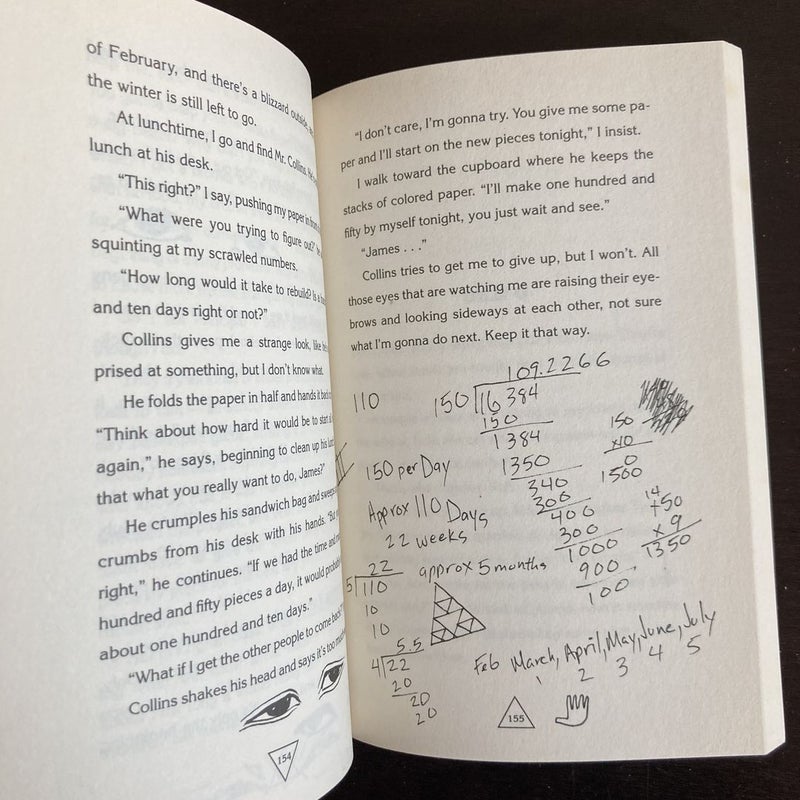 of February, and there's a blizzard outside,
the winter is still left to go.
At lunchtime, I go and find Mr. Collins.
lunch at his desk.
"This right?" I say, pushing my paper in
"What were you trying to figure out?"
squinting at my scrawled numbers.
"How long would it take to rebuild? Is
and ten days right or not?"
Collins gives me a strange look, like
prised at something, but I don't know what.
He folds the paper in half and hands it back
"Think about how hard it would be to start
again," he says, beginning to clean up his
that what you really want to do, James?"
He crumples his sandwich bag and sweeps
crumbs from his desk with his hands.
right," he continues. "If we had the time and
hundred and fifty pieces a day, it would
about one hundred and ten days."
"What if I get the other people to come back?"
Collins shakes his head and says it's too
154
"I don't care, I'm gonna try. You give me some pa-
per and I'll start on the new pieces tonight," I insist.
I walk toward the cupboard where he keeps the
stacks of colored paper. "I'll make one hundred and
fifty by myself tonight, you just wait and see."
"James . . ."
Collins tries to get me to give up, but I won't. All
those eyes that are watching me are raising their eye-
brows and looking sideways at each other, not sure
what I'm gonna do next. Keep it that way.
109.2266
110
150 16384
150
1384
1350
340
300
400
300
1000
900
100
150
x10
0
1500
14
150
x 9
1350
150 per Day
Approx 110 Days
22 weeks
approx 5 months
22
5 110
10
10
5.5
4 22
20
20
20
Feb March, April, May, June, July
1 2 3 4 5
155